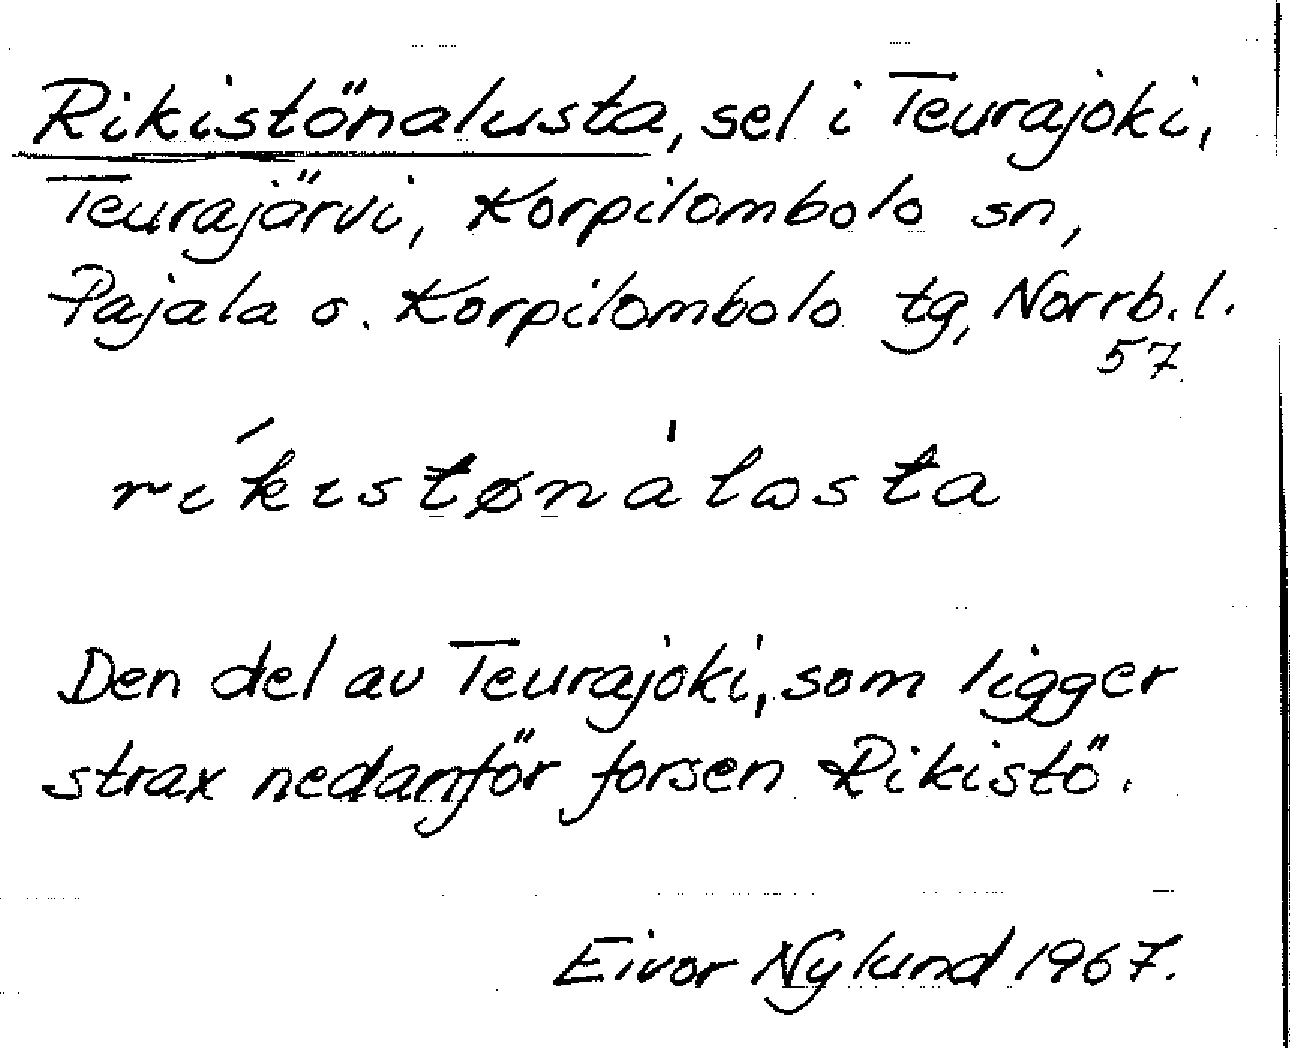 Rikistönalusta, sel i Teurajoki,
Teurajärvi, Korpilombolo sn,
Pajala o. Korpilombolo tg, Norrb. l.
57.
ríkistøna̍lωsta
Den del av Teurajoki, som ligger
strax nedanför forsen Rikistö.
Eivor Nylund 1967.